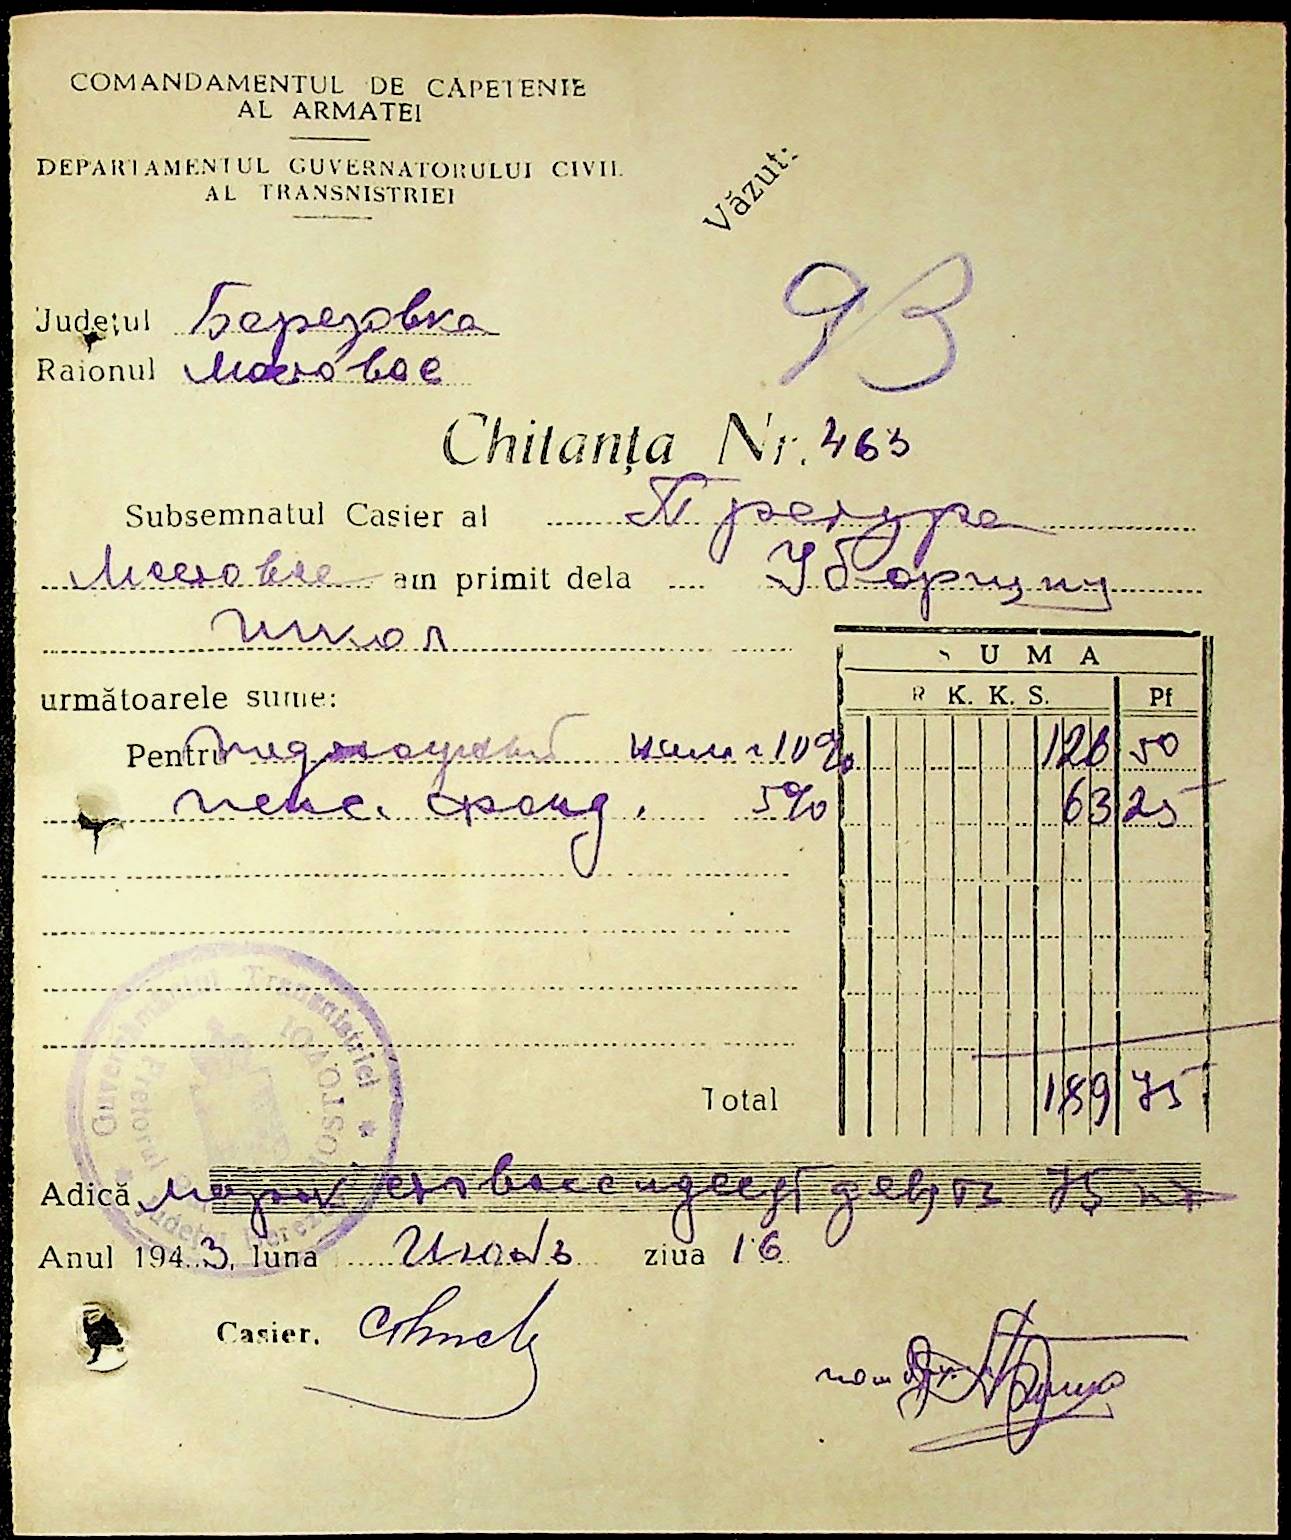 COMANDAMENTUL DE CAPETENIE
AL ARMATEI
DEPARTAMENTUL GUVERNATORULUI CIVIL
AL TRANSNISTRIEI
Văzut:
93
Județul Березовка
Raionul Мостовое
Chitanța Nr. 463
Subsemnatul Casier al Претура
Мостовое am primit dela Уборщиц
школ
următoarele sume:
SUMA
R. K. K. S. Pf
Pentru подоходный 10% 126 50
пенс. фонд. 5% 63 25
Total 189 75
Guvernământul Transnistriei
Pretorul
MOSTOVOI
Județul Berezovca
Adică марок сто восемдесят девять 75 пф
Anul 1943, luna Июль ziua 16
Casier.